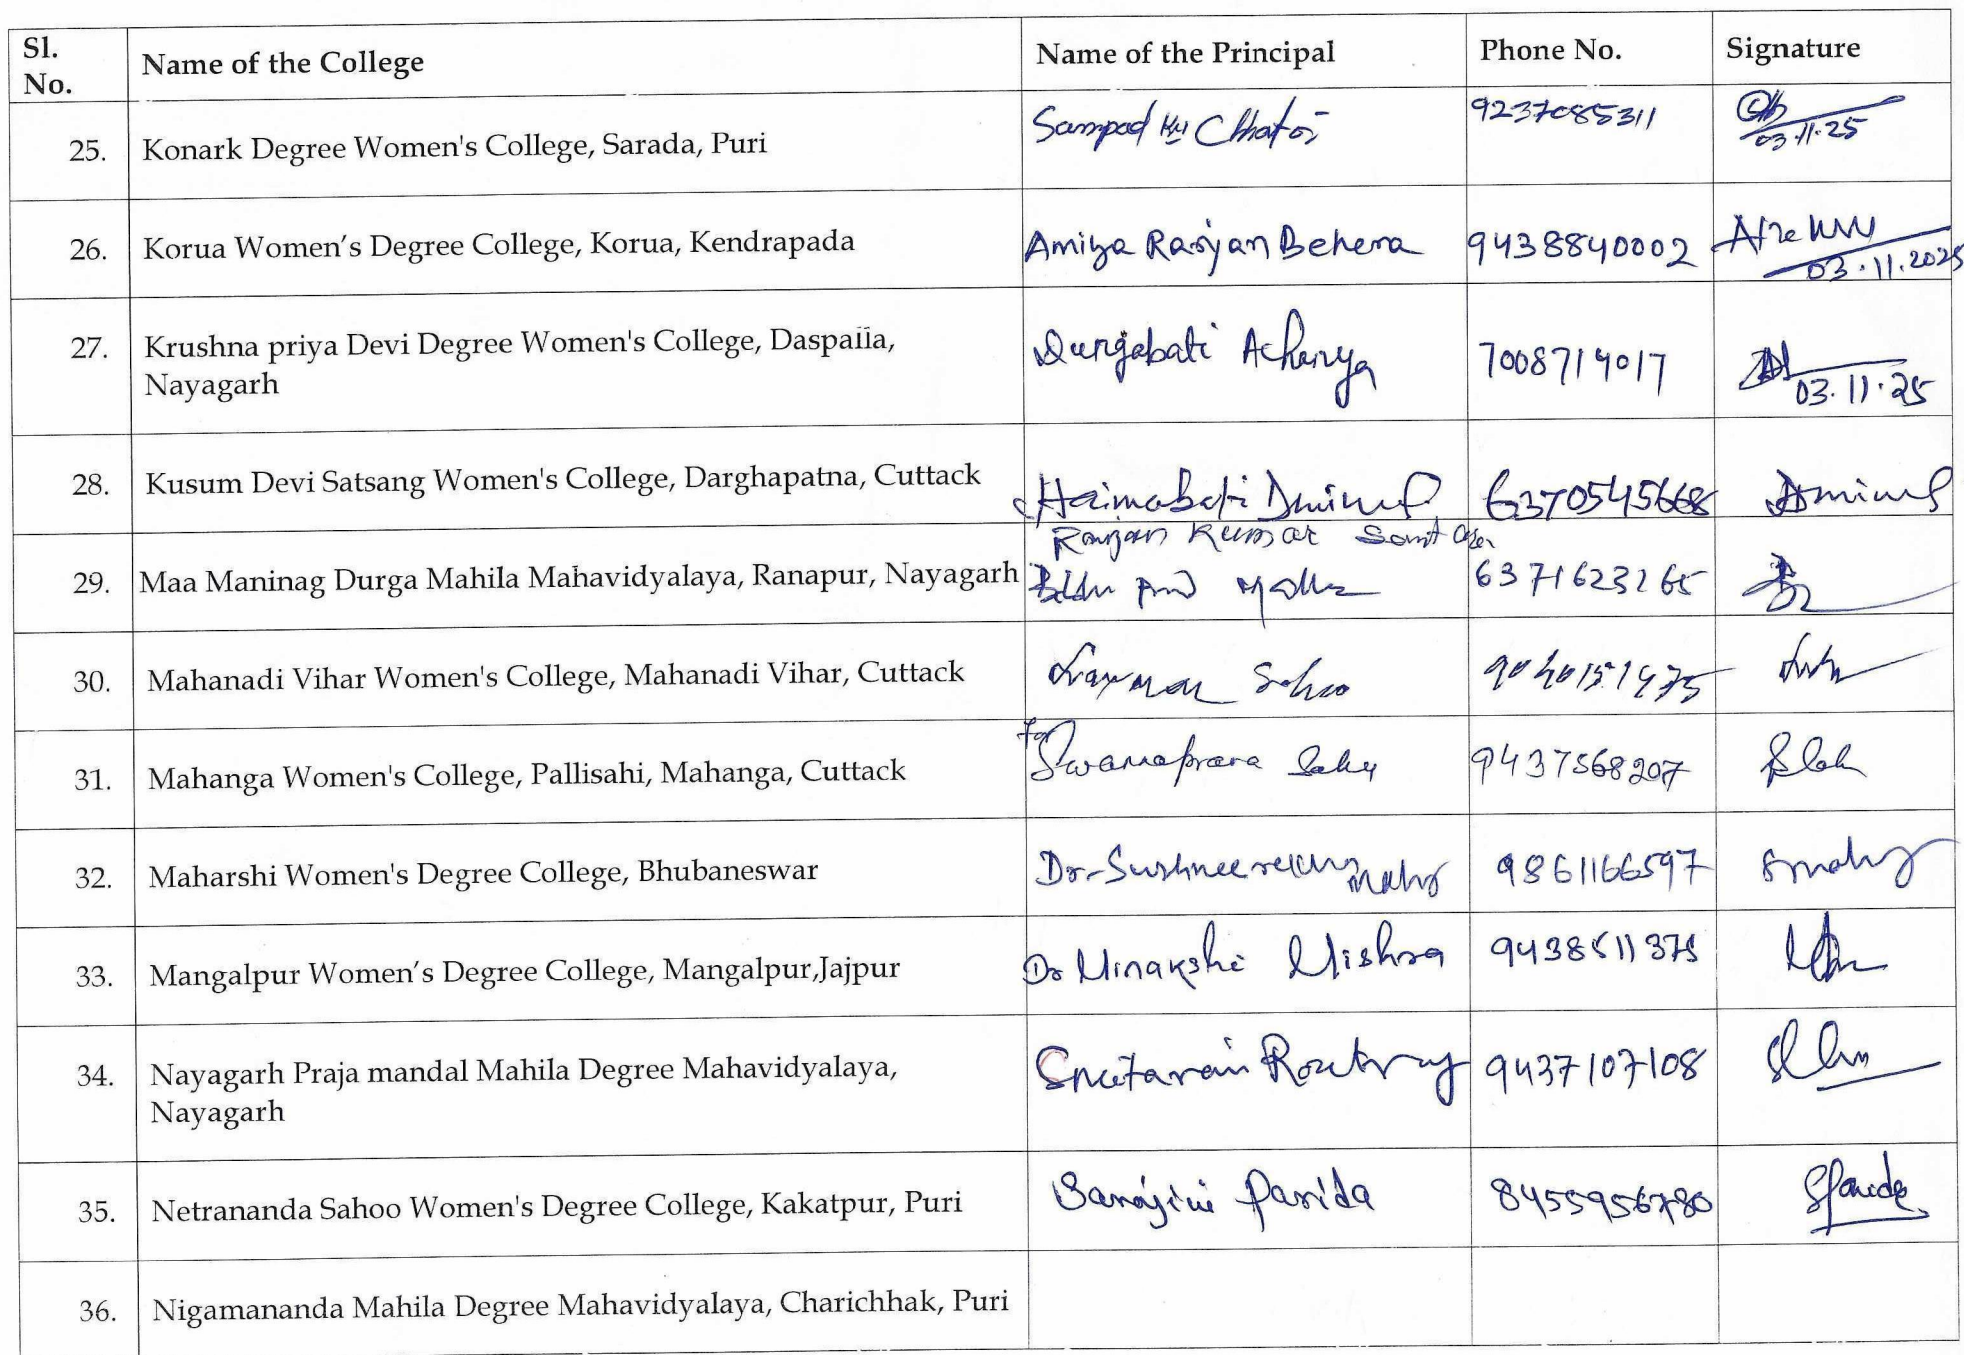 Sl. No. Name of the College Name of the Principal Phone No. Signature
25. Konark Degree Women's College, Sarada, Puri Sampad Ku Chhatoi 9237085311
03.11.25
26. Korua Women's Degree College, Korua, Kendrapada Amiya Ranjan Behera 9438840002
03.11.2025
27. Krushna priya Devi Degree Women's College, Daspalla, Durgabati Acharya 7008714017
Nayagarh 03.11.25
28. Kusum Devi Satsang Women's College, Darghapatna, Cuttack Haimabati 6370545668
Ranjan Kumar
29. Maa Maninag Durga Mahila Mahavidyalaya, Ranapur, Nayagarh
30. Mahanadi Vihar Women's College, Mahanadi Vihar, Cuttack Laxman Sahoo
For
31. Mahanga Women's College, Pallisahi, Mahanga, Cuttack Swarnaprava Sahu 9437568207
32. Maharshi Women's Degree College, Bhubaneswar Dr. 9861166597
33. Mangalpur Women's Degree College, Mangalpur,Jajpur Dr Minakshi Mishra
34. Nayagarh Praja mandal Mahila Degree Mahavidyalaya, Routray 9437107108
Nayagarh
35. Netrananda Sahoo Women's Degree College, Kakatpur, Puri Sarojini Parida
36. Nigamananda Mahila Degree Mahavidyalaya, Charichhak, Puri